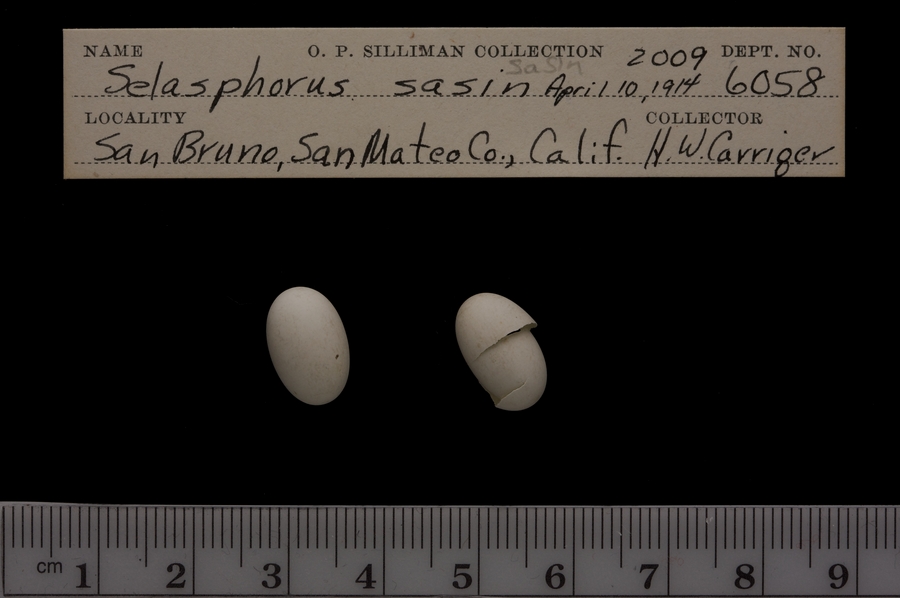 NAME O. P. SILLIMAN COLLECTION 2009 DEPT. NO.
sasin
Selasphorus sasin April 10, 1914 6058
LOCALITY COLLECTOR
San Bruno, San Mateo Co., Calif. H. W. Carriger
cm 1 2 3 4 5 6 7 8 9